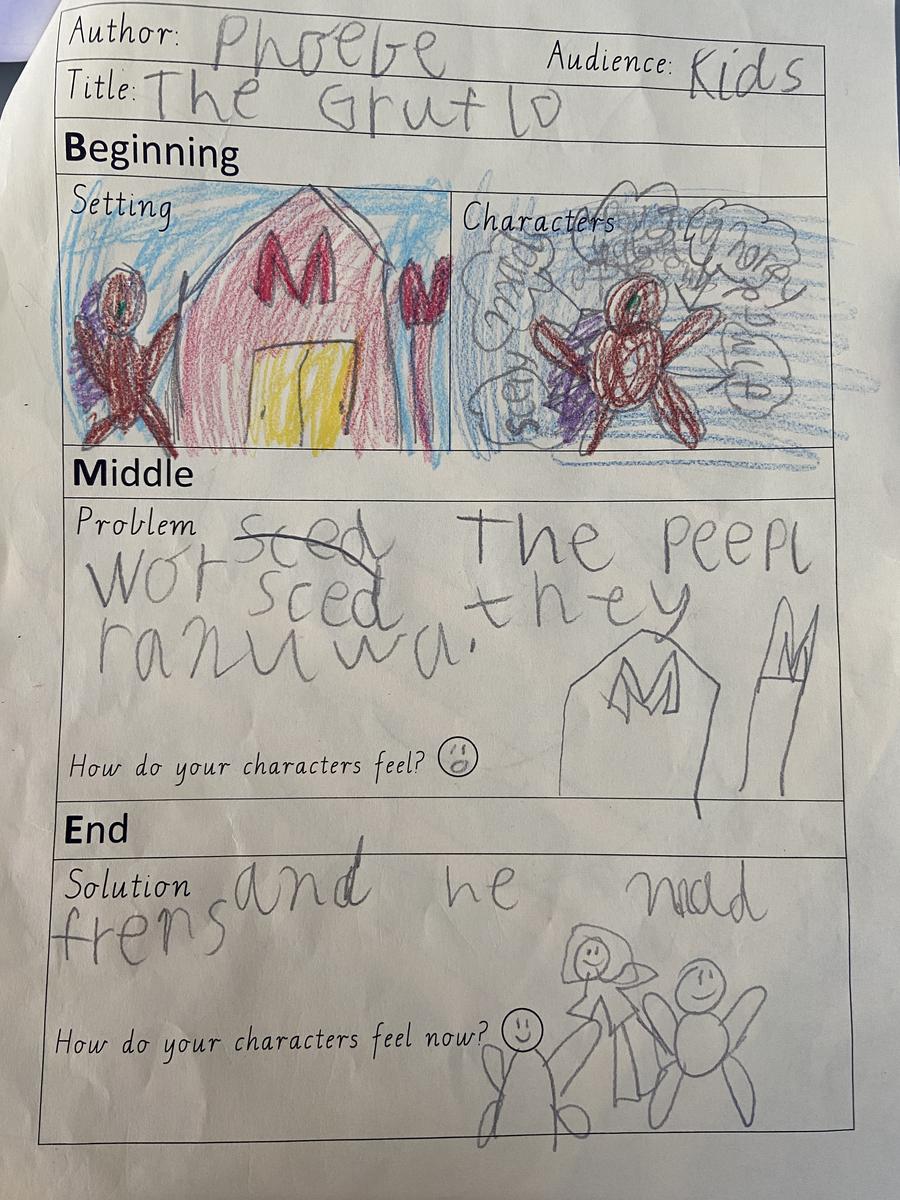 Author: Phoebe Audience: Kids
Title: The Gruflo
Beginning
Setting
Characters
M
M
Middle
Problem sced The peepl
wor sced they
ranuwa.
M
M
How do your characters feel?
End
Solution and he mad
frens
How do your characters feel now?